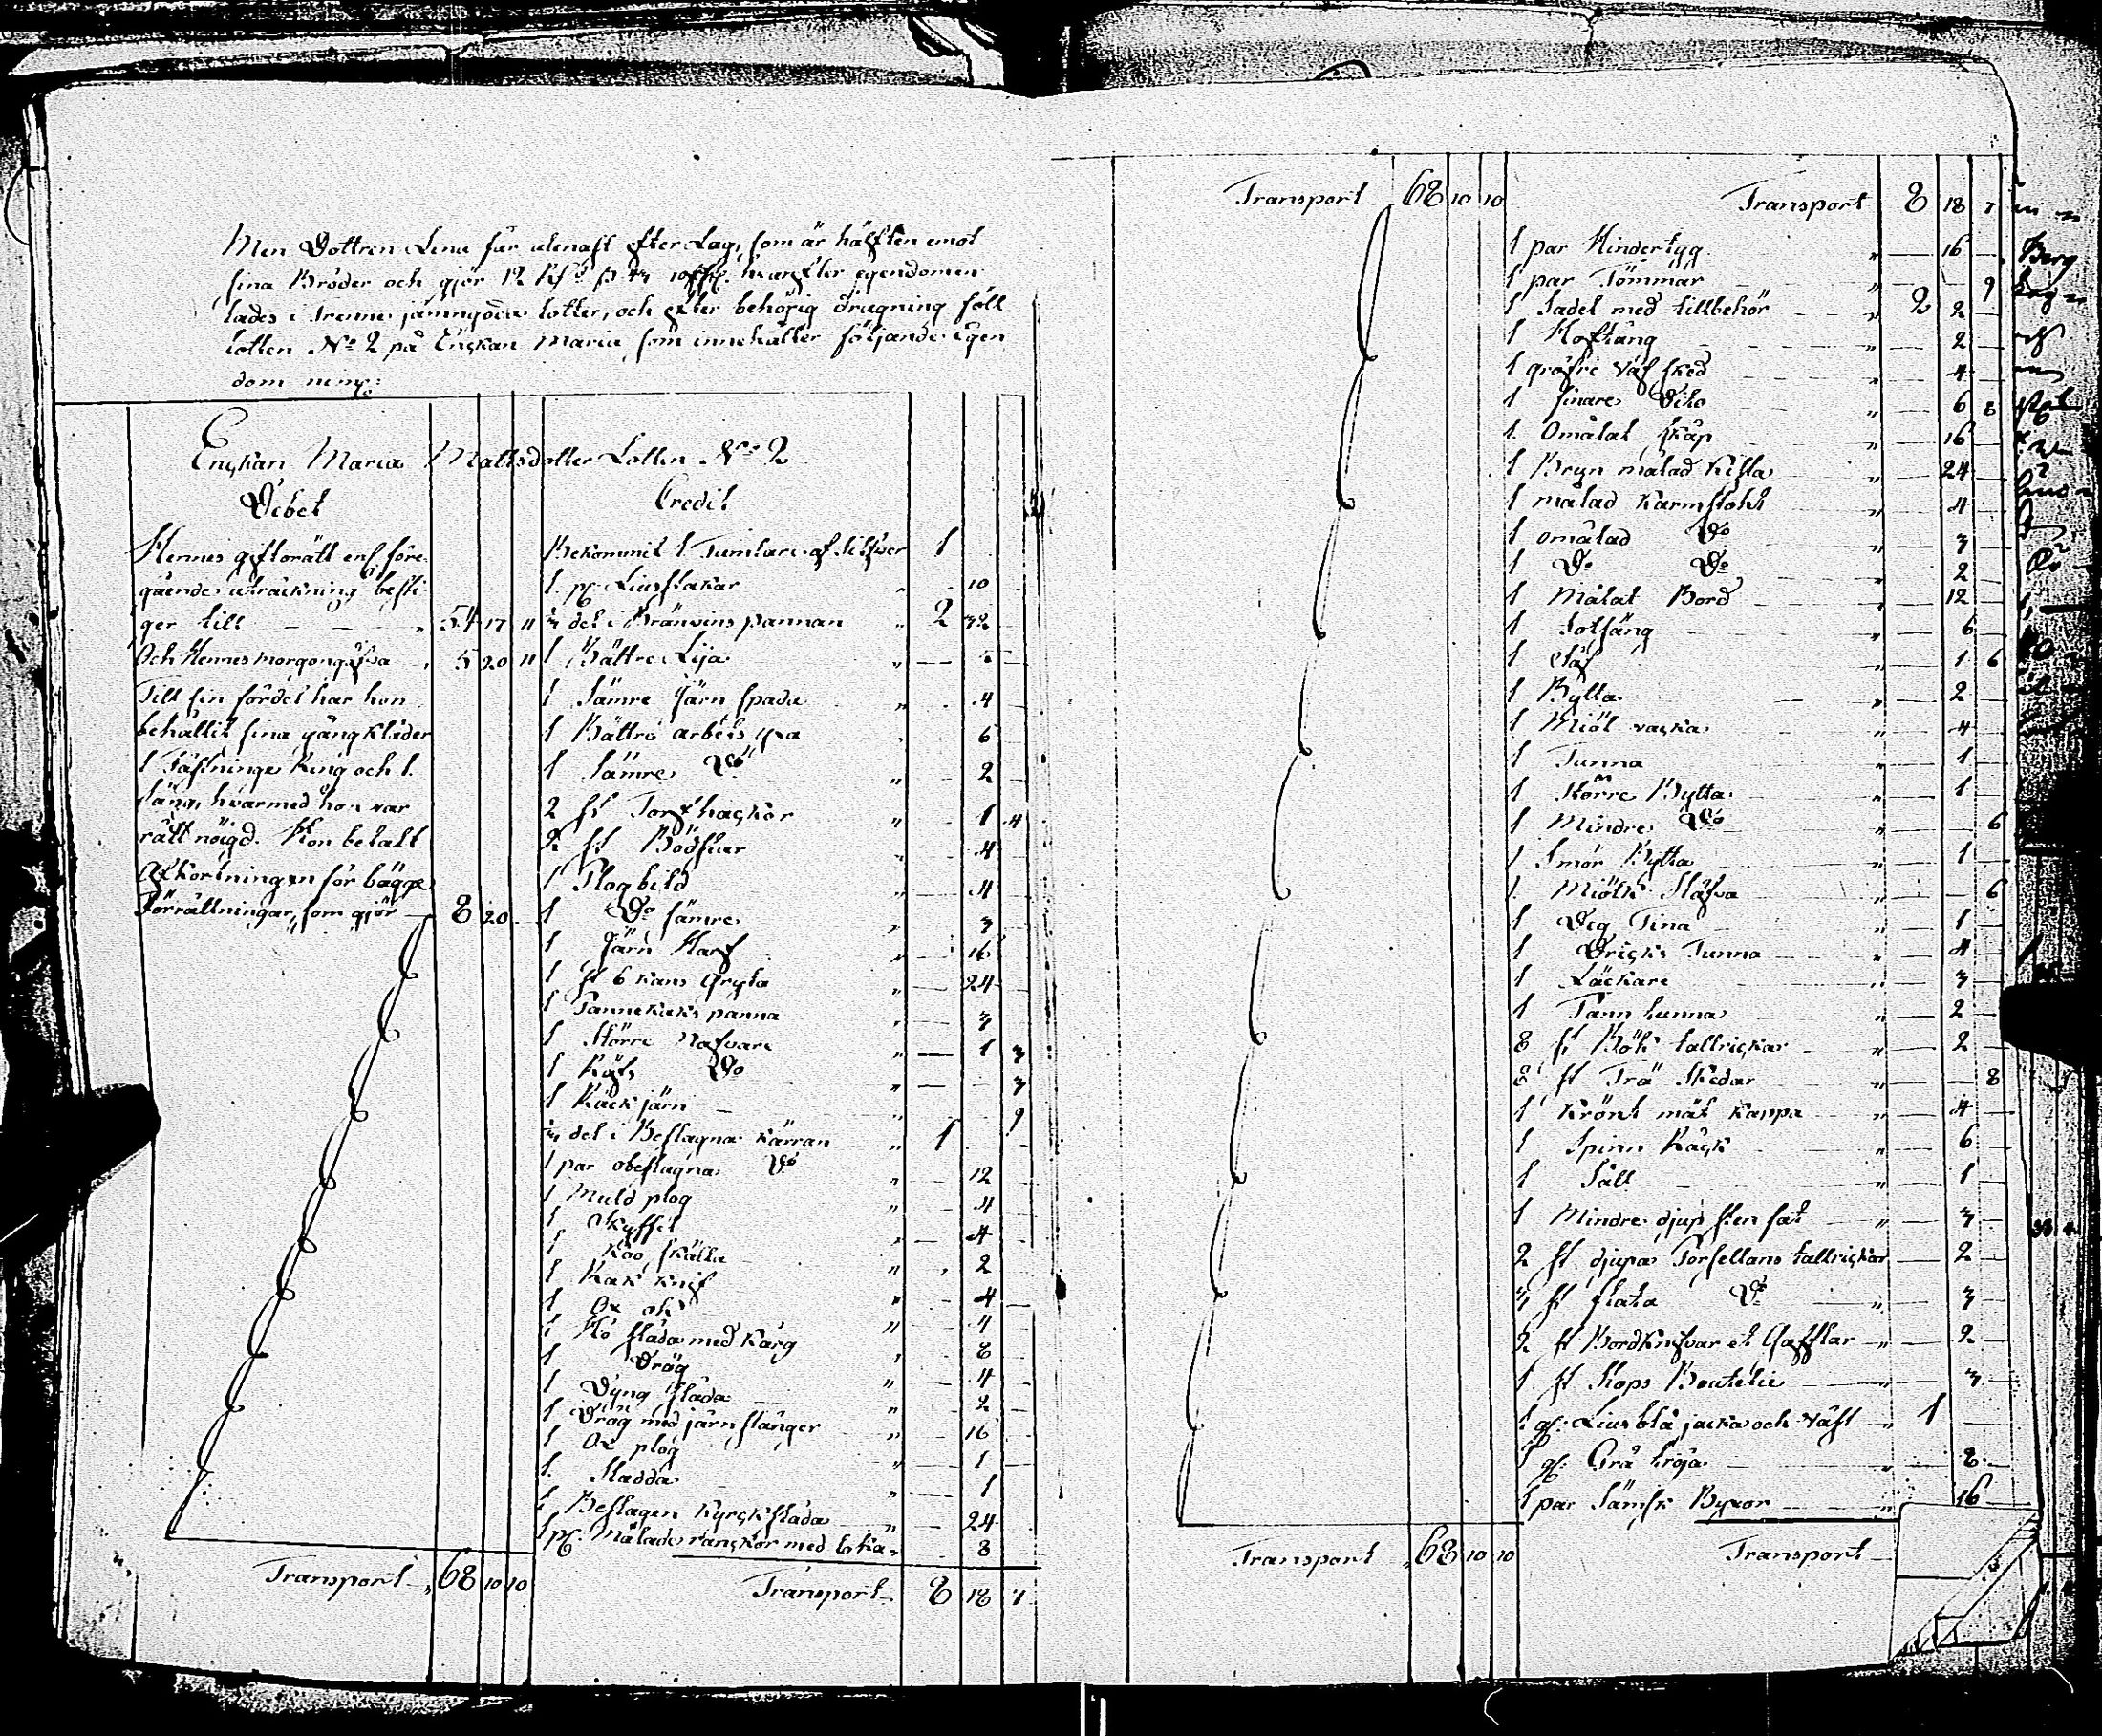 Men Dottren Lena får alenast efter Lag, som är hälften emot
sina Bröder och gjör 12 Rd
lades i Trenne jämngoda lotter, och efter behörig dragning föll
lotten No 2 på Enckan Maria som innehåller följande Egen
dom
Enckan Maria Mattsdotter Lotten No 2
Debet
Hennes giftorätt enl. före-
gående uträckning besti
ger till 54 17 11
Och Hennes morgongåfva 5 20 11
Till sin fördel har hon
behållit sina gångkläder
1 Fästninge Ring och 1
säng, hvarmed hon var
rätt nöigd. Hon betalt
Afkortningen för bägge
Förrättningar, som gjör 8 20
Transport 68 10 10
Credit
Bekommit 1 Tumlare af Silfver 1
1 pr Liusstakar 10
del i Bränvins pannan 2 32
1 Bättre Lija
1 Sämre Järn spada 4
1 Bättre arbets yxa 6
1 Sämre Do 2
2 st Torfhackor 1 4
2 st 4
1 Plogbild 4
1 Do sämre 3
1 Järn Harf 16
1 st 6 kans Gryta 24
1 Pannekaks panna 3
1 Större Nafvare 1 3
1 Do 3
1 järn 9
del i Beslagna Kärran 1
1 par obeslagna Do 12
1 Muld plog 4
1 Skyffel 4
1 Koo skälla 2
1 knif 4
1 Ox ok 4
1 Hö släda med Karg 8
1 Drög 4
1 Dyng släda 2
1 Drög med järn stänger 16
1 Ox plog 1
1 Sladda 1
1 Beslagen Kyrcksläda 24
1 pr Målade med 8
Transport 8 18 7
Transport 68 10 10
Transport 8 18 7
1 par Hindertyg 16
1 par Tömmar 9
1 Sadel med tillbehör 2 2
1 Hoftång 2
1 gröfre Väf sked 4
1 finare Dito 6 8
1 Omålat skåp 16
1 Bryn målad Kista 24
1 målad Karmstohl 4
1 omålad Do 3
1 Do Do 2
1 Målat Bord 12
1 Sotsäng 6
1 Såf 1 6
1 Bytta 2
1 Miöl vacka 4
1 Tunna 1
1 Större Bytta 1
1 Mindre Do 6
1 Smör Bytta 1
1 Miölk Stäfva 6
1 Deg Tina 1
1 Dricks Tunna 4
1 Läckare 3
1 tunna 2
8 st Bök tallrickar 2
8 st Trä Skedar 8
1 Krönt mål Kappa 4
1 Spinn Råck 6
1 Såll 1
1 Mindre djup sten fat 3
2 st djupa Porsellans tallrickar 2
3 st flata Do 3
2 st Bordknifvar et Gafflar 2
1 st Stops Boutelie 3
1 gl: Lius blå jacka och väst 1
1 gl: Grå tröja 8
1 par Sämsk Byxor 16
Transport 68 10 10
Transport